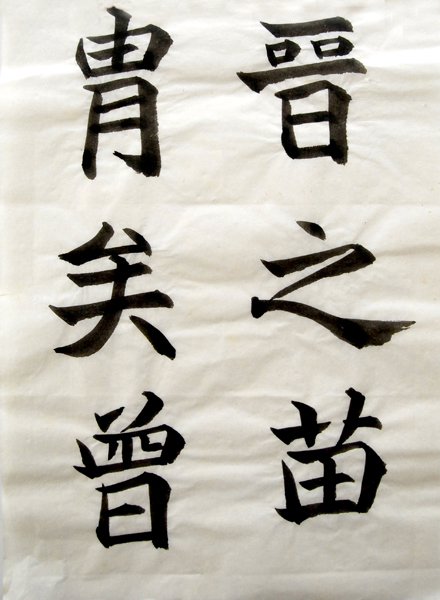 晉之苗
胄矣曾